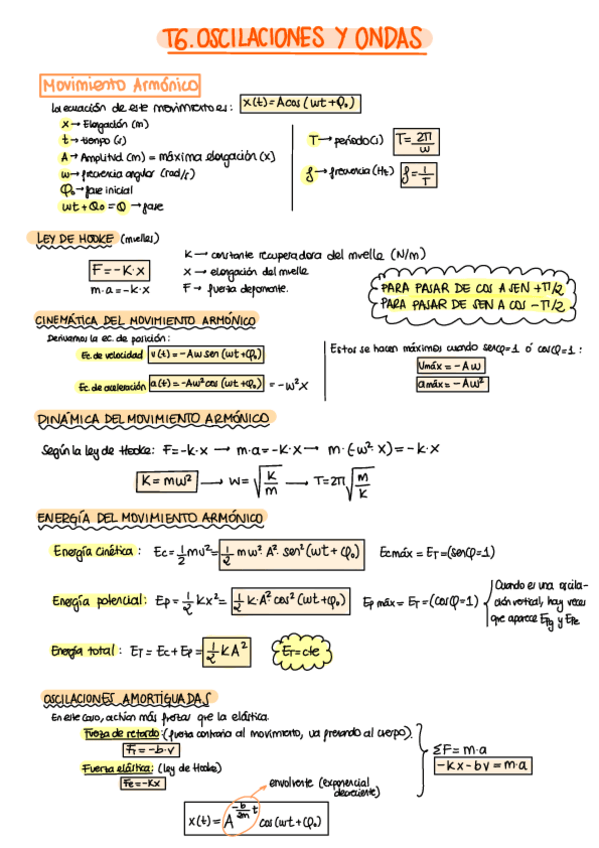 T6. OSCILACIONES Y ONDAS
Movimiento Armónico
La ecuación de este movimiento es: x(t)=A cos (wt+φ₀)
x → Elongación (m)
t → tiempo (s)
A → Amplitud (m) = máxima elongación (x)
w → frecuencia angular (rad/s)
φ₀ → fase inicial
wt+φ₀ = φ → fase
T → periodo (s) T = 2π/w
f → frecuencia (Hz) f = 1/T
LEY DE HOOKE (muelles)
F = -K·x
m·a = -K·x
K → constante recuperadora del muelle (N/m)
x → elongación del muelle
F → fuerza deformante.
PARA PASAR DE COS A SEN +π/2
PARA PASAR DE SEN A COS -π/2
CINEMÁTICA DEL MOVIMIENTO ARMÓNICO
Derivamos la ec. de posición:
Ec. de velocidad v(t) = -Aw sen (wt+φ₀)
Ec. de aceleración a(t) = -Aw² cos (wt+φ₀) = -w²x
Estos se hacen máximos cuando senφ=1 ó cosφ=1:
Vmáx = -Aw
amáx = -Aw²
DINÁMICA DEL MOVIMIENTO ARMÓNICO
Según la ley de Hooke: F=-k·x → m·a=-K·x → m·(-w²·x) = -k·x
K = mw² → w = √(K/m) → T = 2π√(m/K)
ENERGÍA DEL MOVIMIENTO ARMÓNICO
Energía cinética: Ec = 1/2 mv² = 1/2 mw²·A²·sen²(wt+φ₀) Ecmáx = ET = (senφ=1)
Energía potencial: Ep = 1/2 Kx² = 1/2 K·A²·cos²(wt+φ₀) Ep máx = ET = (cosφ=1)
Cuando es una oscila-
ción vertical, hay veces
que aparece Epg y Epe
Energía total: ET = Ec + Ep = 1/2 KA² ET = cte
OSCILACIONES AMORTIGUADAS
En este caso, actúan más fuerzas que la elástica.
Fuerza de retardo: (fuerza contraria al movimiento, va frenando al cuerpo).
Fr = -b·v
Fuerza elástica: (ley de Hooke)
Fe = -Kx
ΣF = m·a
-Kx - bv = m·a
envolvente (exponencial
decreciente)
x(t) = A^(-b/2m t) cos (wt+φ₀)